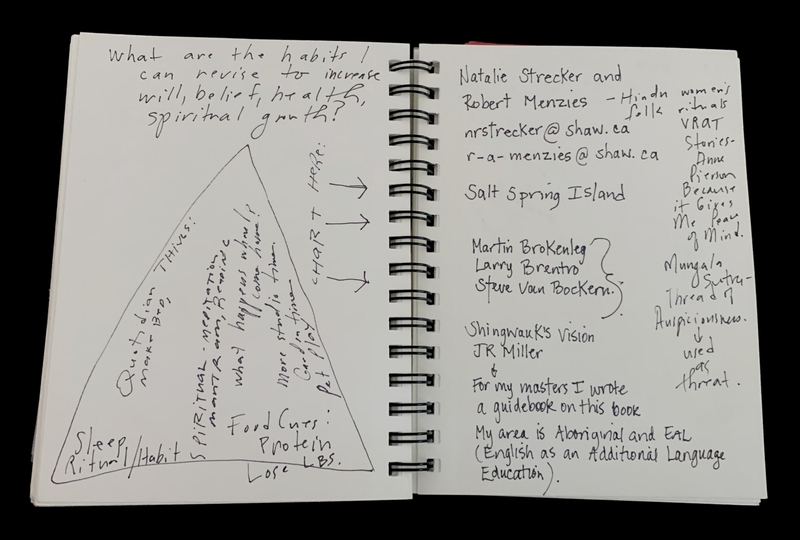 What are the habits I
can revise to increase
will, belief, health,
spiritual growth?
CHART HERE:
Quotidian THINGS:
make BED,
SPIRITUAL - meditation,
mantram,
what happens when I
come home?
More studio time
Garden time
Pet play
Sleep
Ritual/Habit
Food Cues:
Protein
Lose LBS.
Natalie Strecker and
Robert Menzies
nrstrecker@shaw.ca
r-a-menzies@shaw.ca
Salt Spring Island
Martin Brokenleg
Larry Brentro
Steve Van Bockern.
Shingwauk's Vision
JR Miller
&
For my masters I wrote
a guidebook on this book
My area is Aboriginal and EAL
(English as an Additional Language
Education).
- Hindu women's
folk rituals
VRAT
Stories-
Anne
Pierson
Because
it Gives
Me Peace
of Mind.
Mungala
Sutra-
Thread of
Auspiciousness.
used
as
threat.